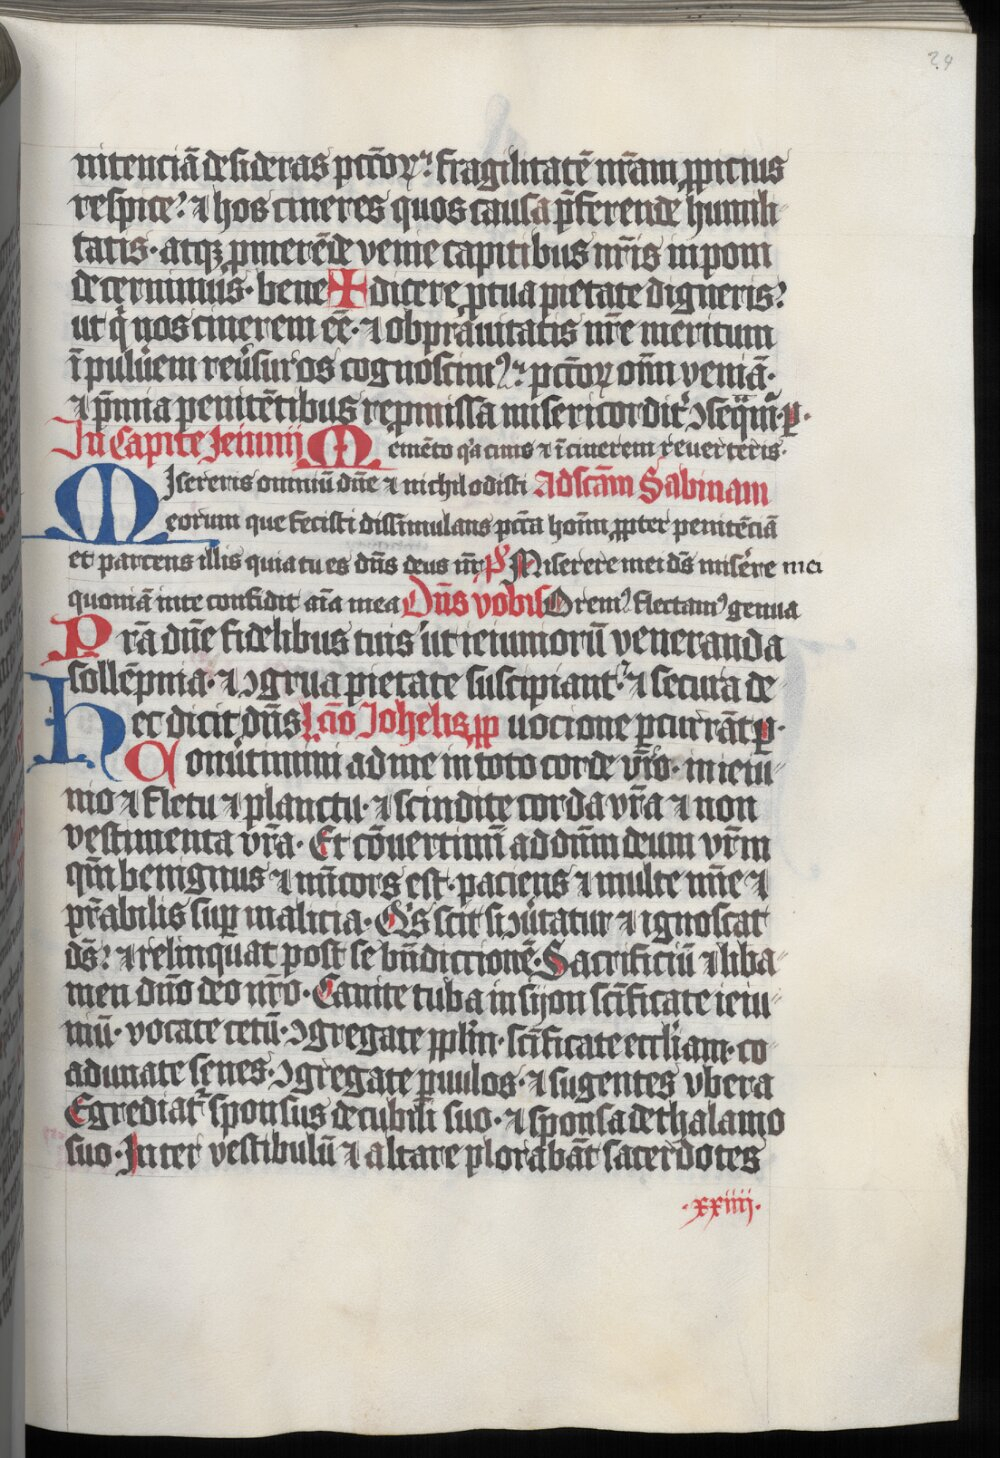 24
nitenciā desideras pctōꝝ: fragilitatē nr̄am ꝓpicius
respice: ⁊ hos cineres quos causa p̄ferende humili-
tatis· atqꝫ ꝓmerēde venie capitibus nr̄is inponi
decernimus· bene ✠ dicere ꝑ tua pietate digneris:
ut q̇ nos cinerem eē· ⁊ ob prauitatis nr̄e meritum
ī puluem reusuros cognoscimꝰ: pctōꝝ om̄n veniā·
⁊ p̄mia penitētibus repmissa misericordit̾ ↄseqm̄r· ꝑ·
In Capite Jeiunij Memēto qa cinis ⁊ ī cinerem reuerteris·
Misereris omniū dn̄e ⁊ nichil odisti Ad scām Sabinam
eorum que fecisti dissimulans pctā hom̄m ꝓpter penitēciā
et parcens illis quia tu es dn̄s deus nr̄ p̄s Miserere mei ds̄ misere mei
quoniā in te confidit aīa mea Dn̄s vobis Oremꝰ flectamꝰ genua
Prā dn̄e fidelibus tuis ut ieiuniorū veneranda
sollēpnia· ⁊ ↄgrua pietate suscipiant: ⁊ secura de-
Hec dicit dn̄s Lcīo Johelis ꝓp uocione ꝑcurrāt ꝑ·
Conutimini ad me in toto corde vr̄o· in ieiu-
nio ⁊ fletu ⁊ planctu· ⁊ scindite corda vr̄a ⁊ non
vestimenta vr̄a· Et cōuertimī ad dn̄m deum vr̄m
qm̄ benignus ⁊ mīcors est· paciens ⁊ multe mīe ⁊
pr̄abilis suꝑ malicia· Q̇s scit si ↄutatur ⁊ ignoscat
ds̄: ⁊ relinquat post se bn̄diccionē· Sacrificiū ⁊ liba-
men dn̄o deo nr̄o· Canite tuba in sijon scīficate ieiu-
niū· vocate cetū· ↄgregate ppl̄m· scīficate eccl̄iam· co-
adunate senes· ↄgregate ꝑuulos· ⁊ sugentes vbera
Egrediat̾ sponsus de cubili suo· ⁊ sponsa de thalamo
suo· Inter vestibulū ⁊ altare plorabāt sacerdotes
·xxiiij·